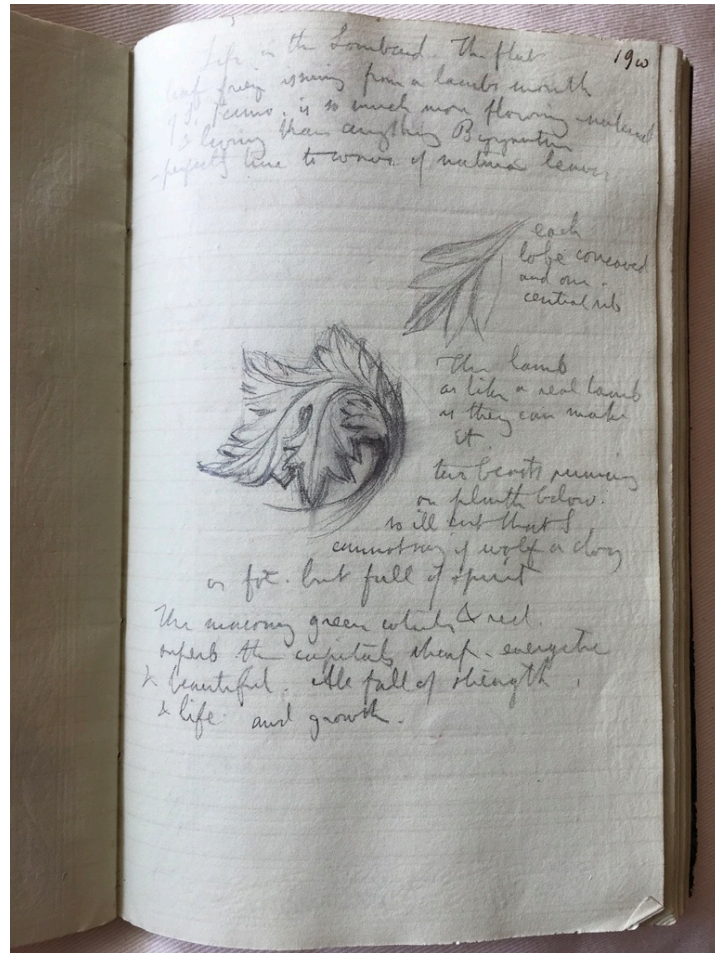 190
Life in the Lombard. The flat
leaf frieze issuing from a lambs mouth
of S. Fermo, is so much more flowing natural
& living than anything Byzantine
perfectly true to curves of natural leaves
each
lobe concaved
and one
central rib
The lamb
as like a real lamb
as they can make
it
two beasts running
on plinth below.
so ill cut that I
cannot say if wolf or dog
or fox. but full of spirit
The masonry green white & red.
superb the capitals sharp. energetic
& beautiful. All full of strength
& life and growth.